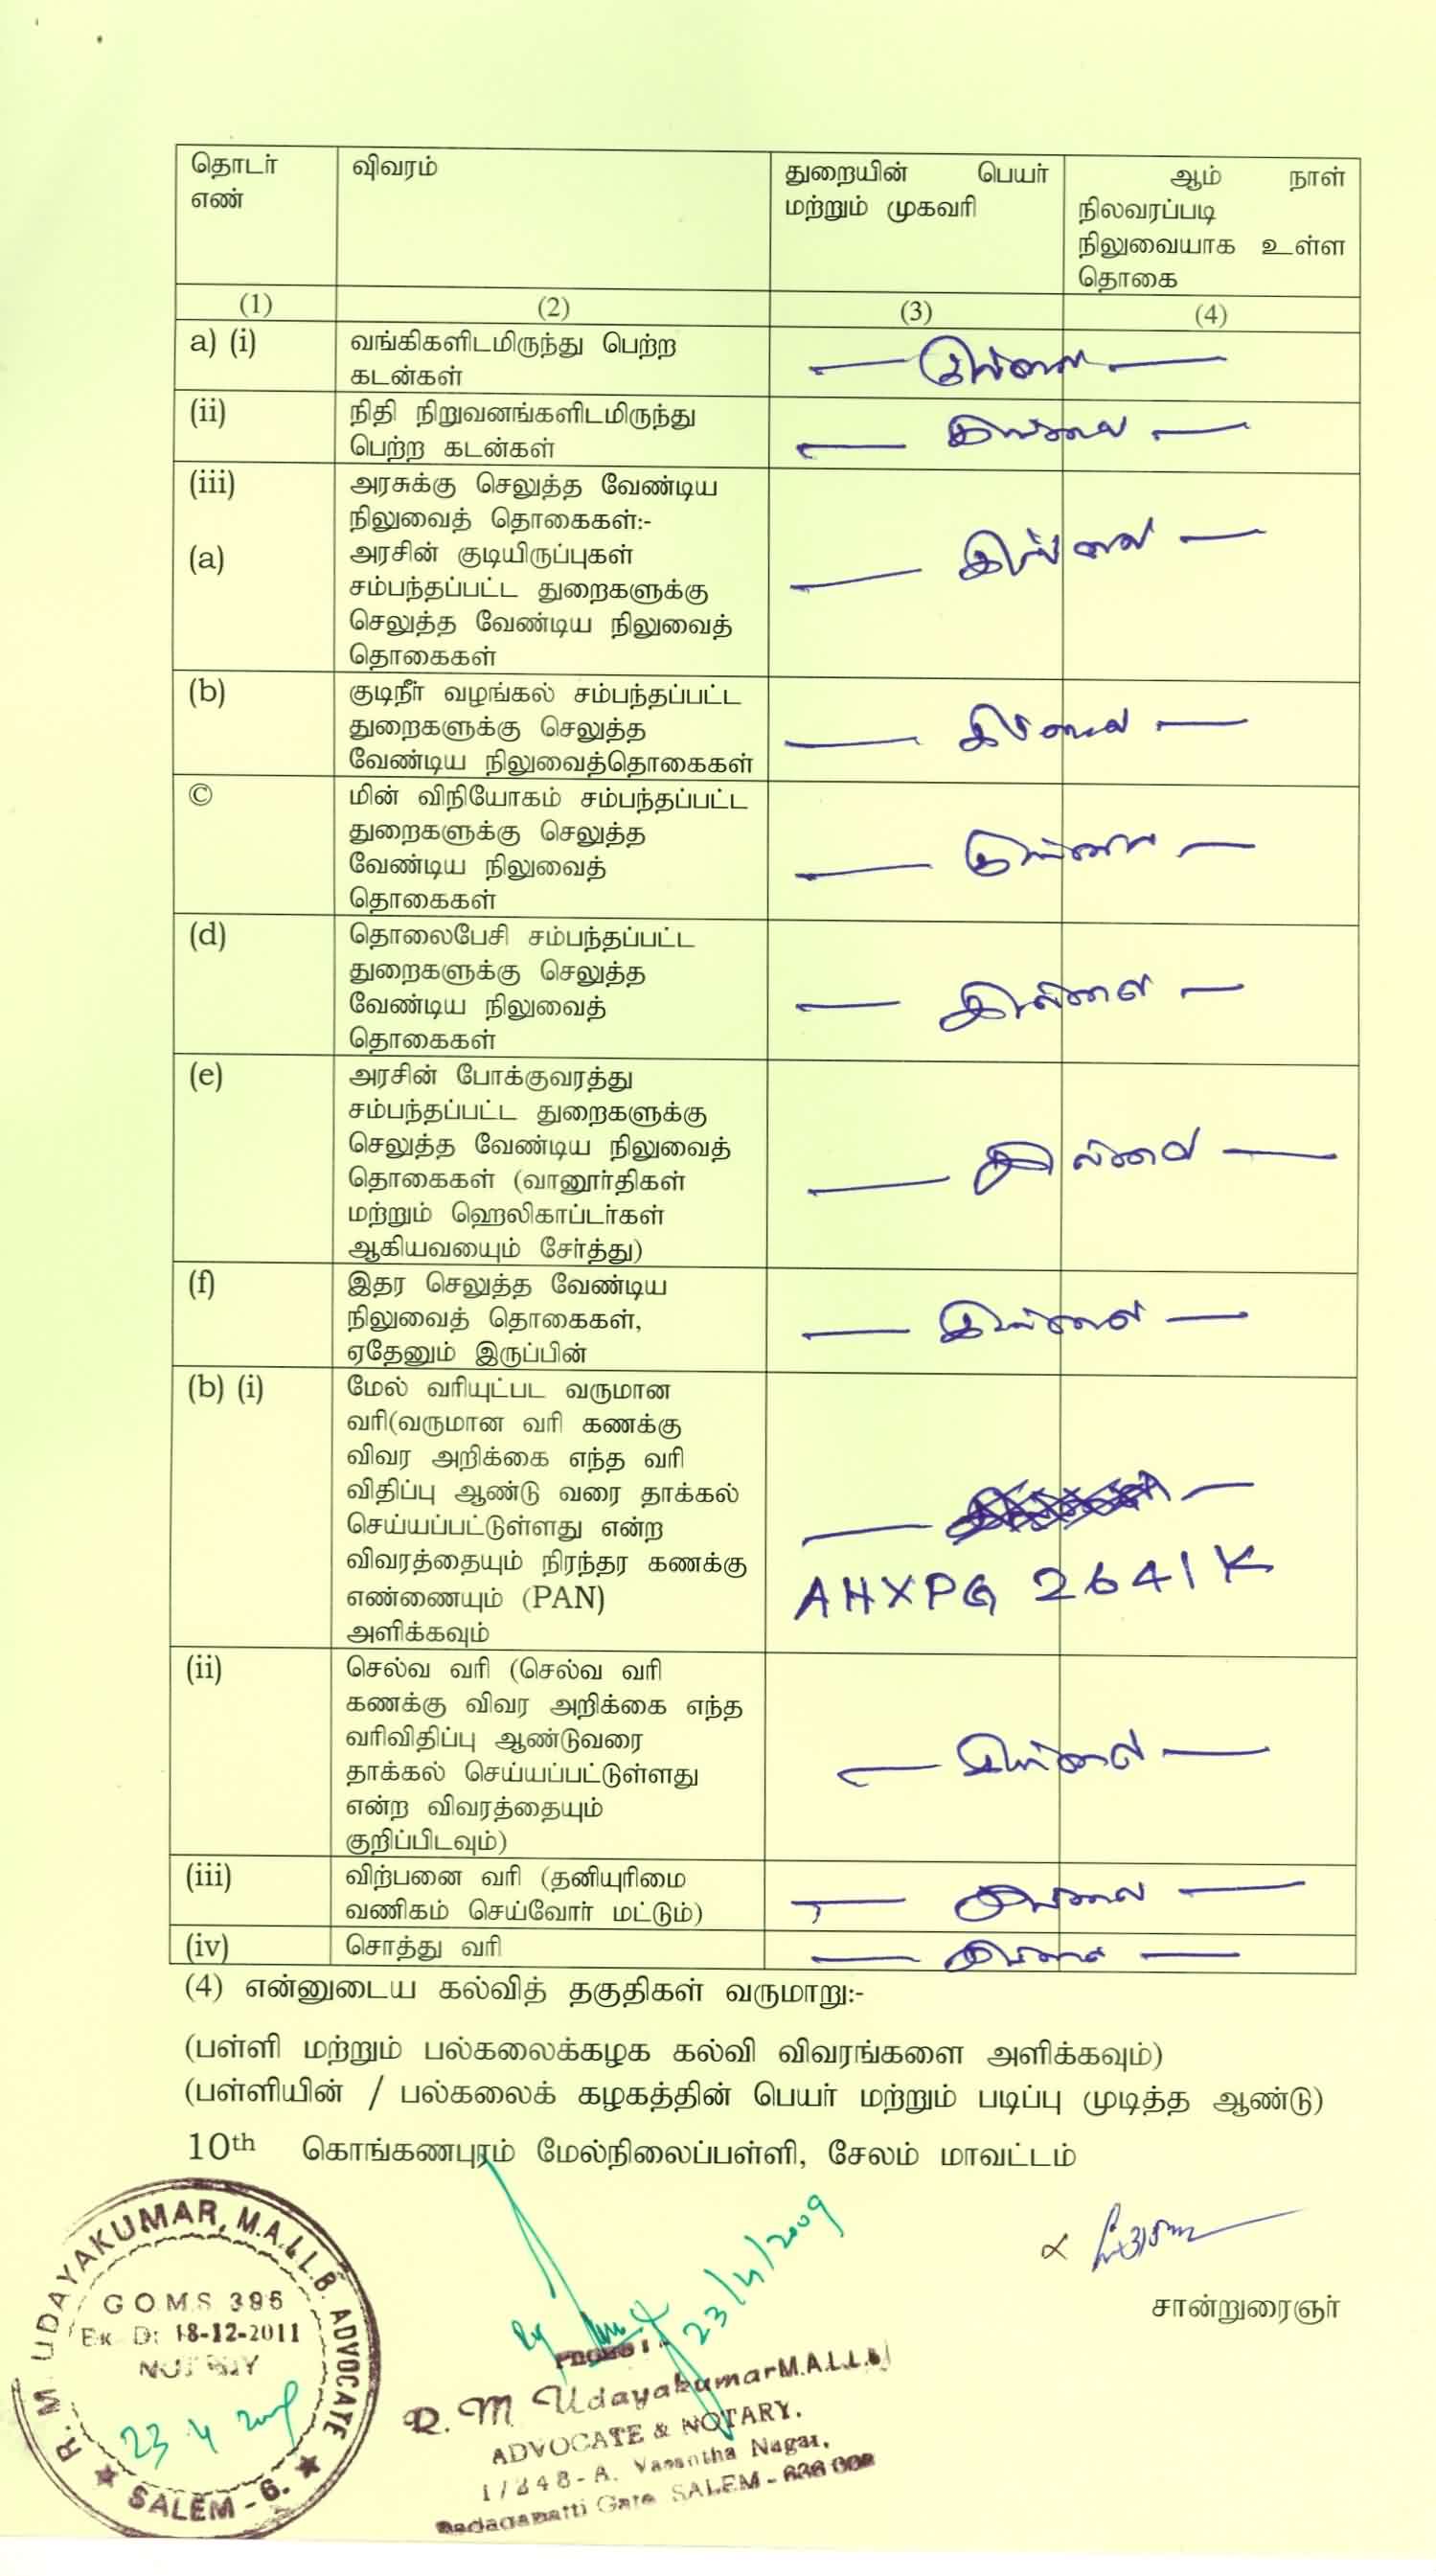 தொடர் எண்
விவரம்
துறையின் பெயர் மற்றும் முகவரி
ஆம் நாள் நிலவரப்படி நிலுவையாக உள்ள தொகை
(1) (2) (3) (4)
a) (i) வங்கிகளிடமிருந்து பெற்ற
கடன்கள்
— இல்லை —
(ii) நிதி நிறுவனங்களிடமிருந்து
பெற்ற கடன்கள்
— இல்லை —
(iii) அரசுக்கு செலுத்த வேண்டிய
நிலுவைத் தொகைகள்:-
(a) அரசின் குடியிருப்புகள்
சம்பந்தப்பட்ட துறைகளுக்கு
செலுத்த வேண்டிய நிலுவைத்
தொகைகள்
— இல்லை —
(b) குடிநீர் வழங்கல் சம்பந்தப்பட்ட
துறைகளுக்கு செலுத்த
வேண்டிய நிலுவைத்தொகைகள்
— இல்லை —
© மின் விநியோகம் சம்பந்தப்பட்ட
துறைகளுக்கு செலுத்த
வேண்டிய நிலுவைத்
தொகைகள்
— இல்லை —
(d) தொலைபேசி சம்பந்தப்பட்ட
துறைகளுக்கு செலுத்த
வேண்டிய நிலுவைத்
தொகைகள்
— இல்லை —
(e) அரசின் போக்குவரத்து
சம்பந்தப்பட்ட துறைகளுக்கு
செலுத்த வேண்டிய நிலுவைத்
தொகைகள் (வானூர்திகள்
மற்றும் ஹெலிகாப்டர்கள்
ஆகியவயையும் சேர்த்து)
— இல்லை —
(f) இதர செலுத்த வேண்டிய
நிலுவைத் தொகைகள்,
ஏதேனும் இருப்பின்
— இல்லை —
(b) (i) மேல் வரியுட்பட வருமான
வரி(வருமான வரி கணக்கு
விவர அறிக்கை எந்த வரி
விதிப்பு ஆண்டு வரை தாக்கல்
செய்யப்பட்டுள்ளது என்ற
விவரத்தையும் நிரந்தர கணக்கு
எண்ணையும் (PAN)
அளிக்கவும்
AHXPG 2641K
(ii) செல்வ வரி (செல்வ வரி
கணக்கு விவர அறிக்கை எந்த
வரிவிதிப்பு ஆண்டுவரை
தாக்கல் செய்யப்பட்டுள்ளது
என்ற விவரத்தையும்
குறிப்பிடவும்)
— இல்லை —
(iii) விற்பனை வரி (தனியுரிமை
வணிகம் செய்வோர் மட்டும்)
— இல்லை —
(iv) சொத்து வரி
— இல்லை —
(4) என்னுடைய கல்வித் தகுதிகள் வருமாறு:-
(பள்ளி மற்றும் பல்கலைக்கழக கல்வி விவரங்களை அளிக்கவும்)
(பள்ளியின் / பல்கலைக் கழகத்தின் பெயர் மற்றும் படிப்பு முடித்த ஆண்டு)
10th கொங்கணபுரம் மேல்நிலைப்பள்ளி, சேலம் மாவட்டம்
சான்றுரைஞர்
23/4/2009
R. M. UDAYAKUMAR, M.A.L.L.B. ADVOCATE
G.O.M.S 396
Ex. D: 18-12-2011
NOTARY
23 4 2009
★ SALEM - 6. ★
R. M Udayakumar M.A.L.L.B
ADVOCATE & NOTARY.
1/248-A, Vasantha Nagar,
Gate SALEM - 636 008